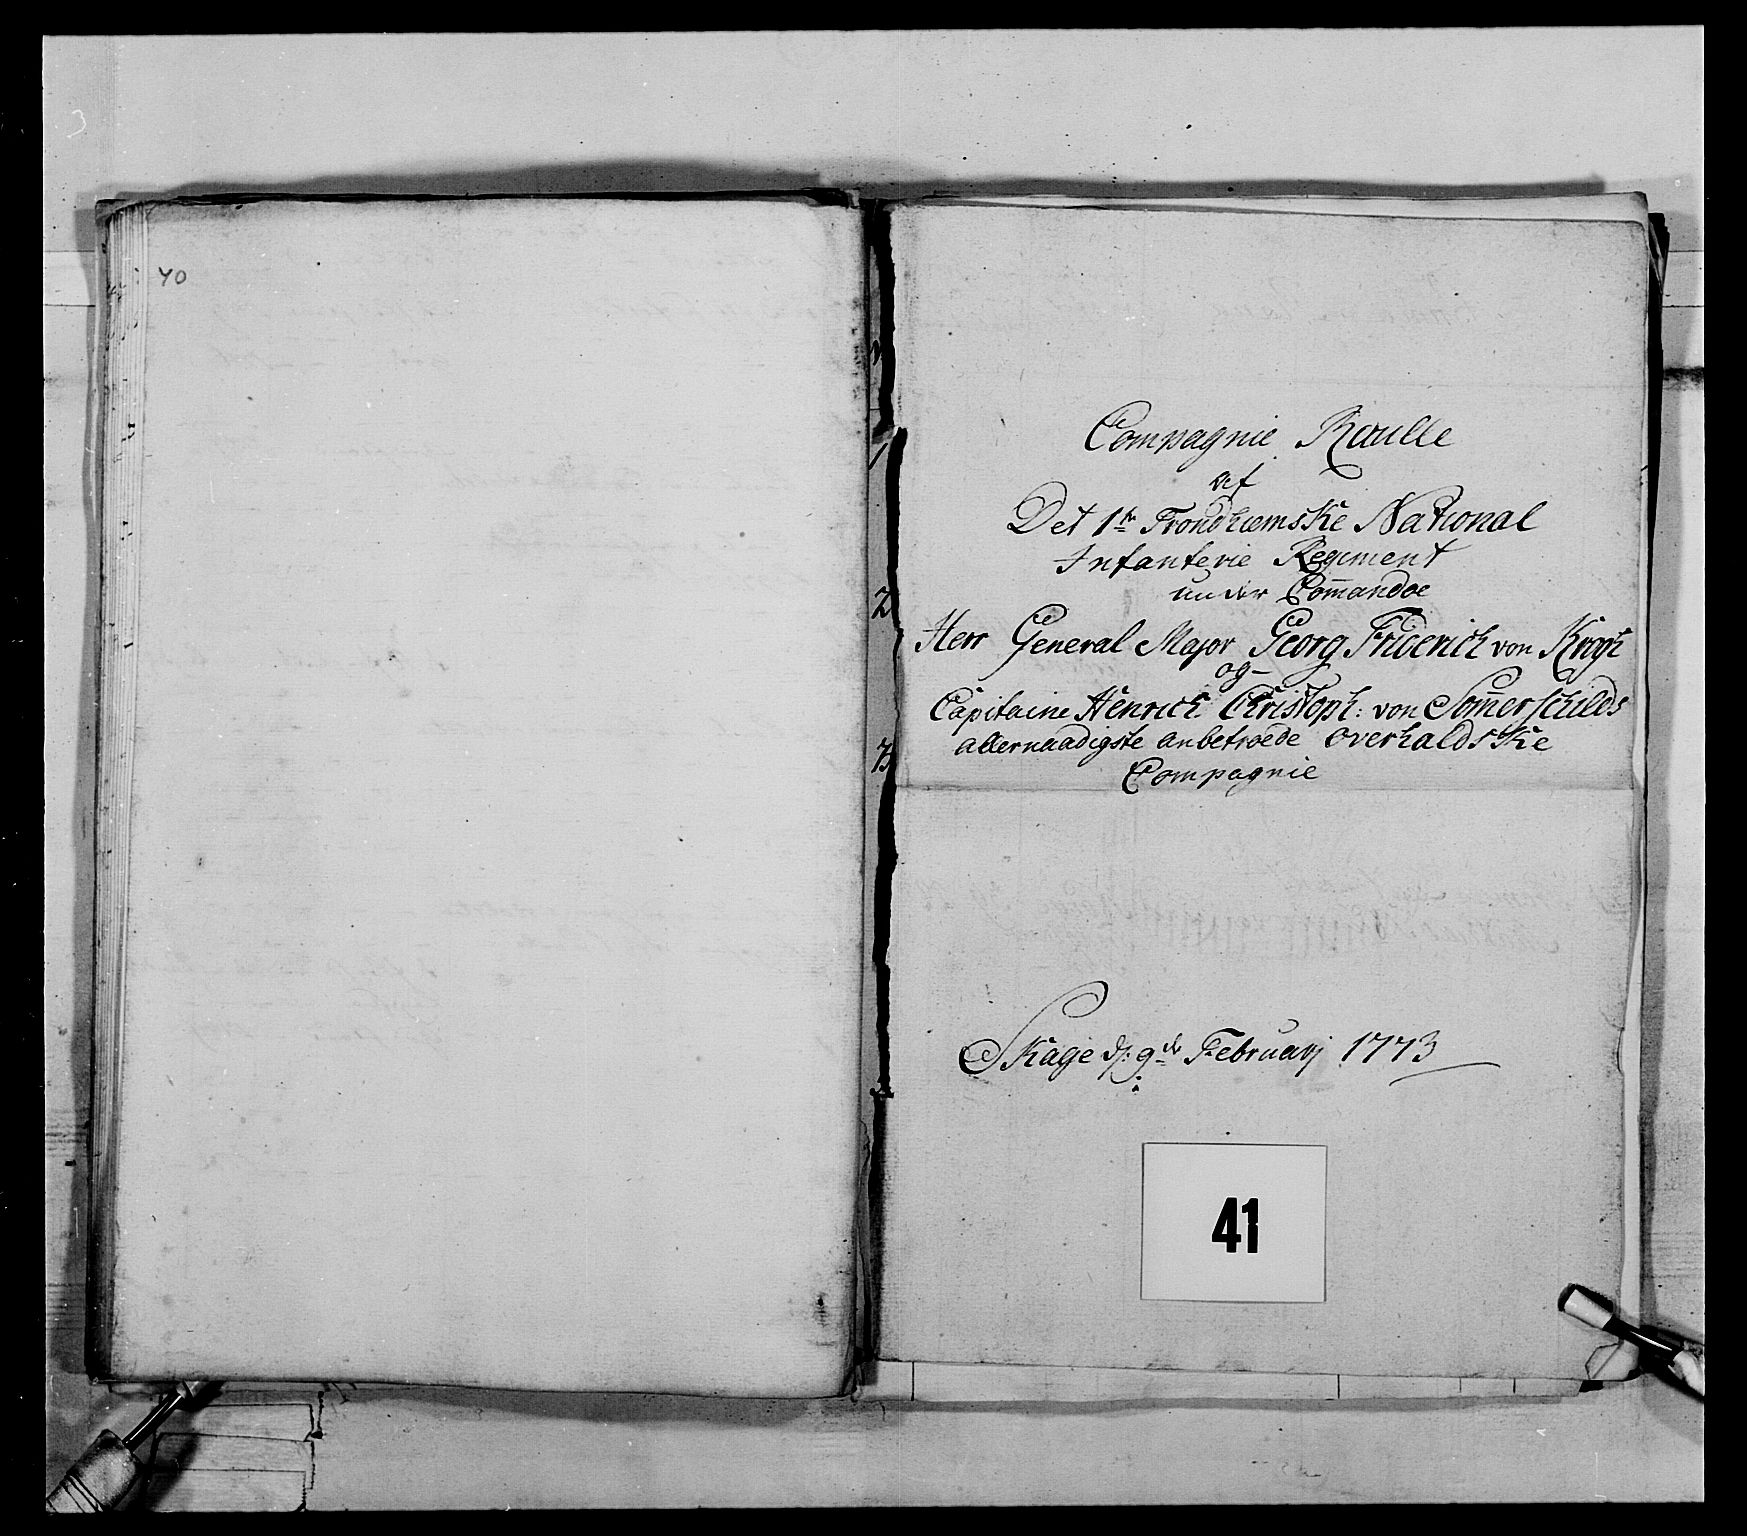 40
Compagnie Roulle
af
Det 1te Trondhiemske National
Infanterie Regiment
under Com̄andoe
Herr General Major Georg Friderich von Krogh
og
Capitaine Henrich Christoph: von Som̄erschilds
allernaadigste anbetroede overhaldske
Compagnie
Skage d: 9de Februarj 1773
41
1
2
3